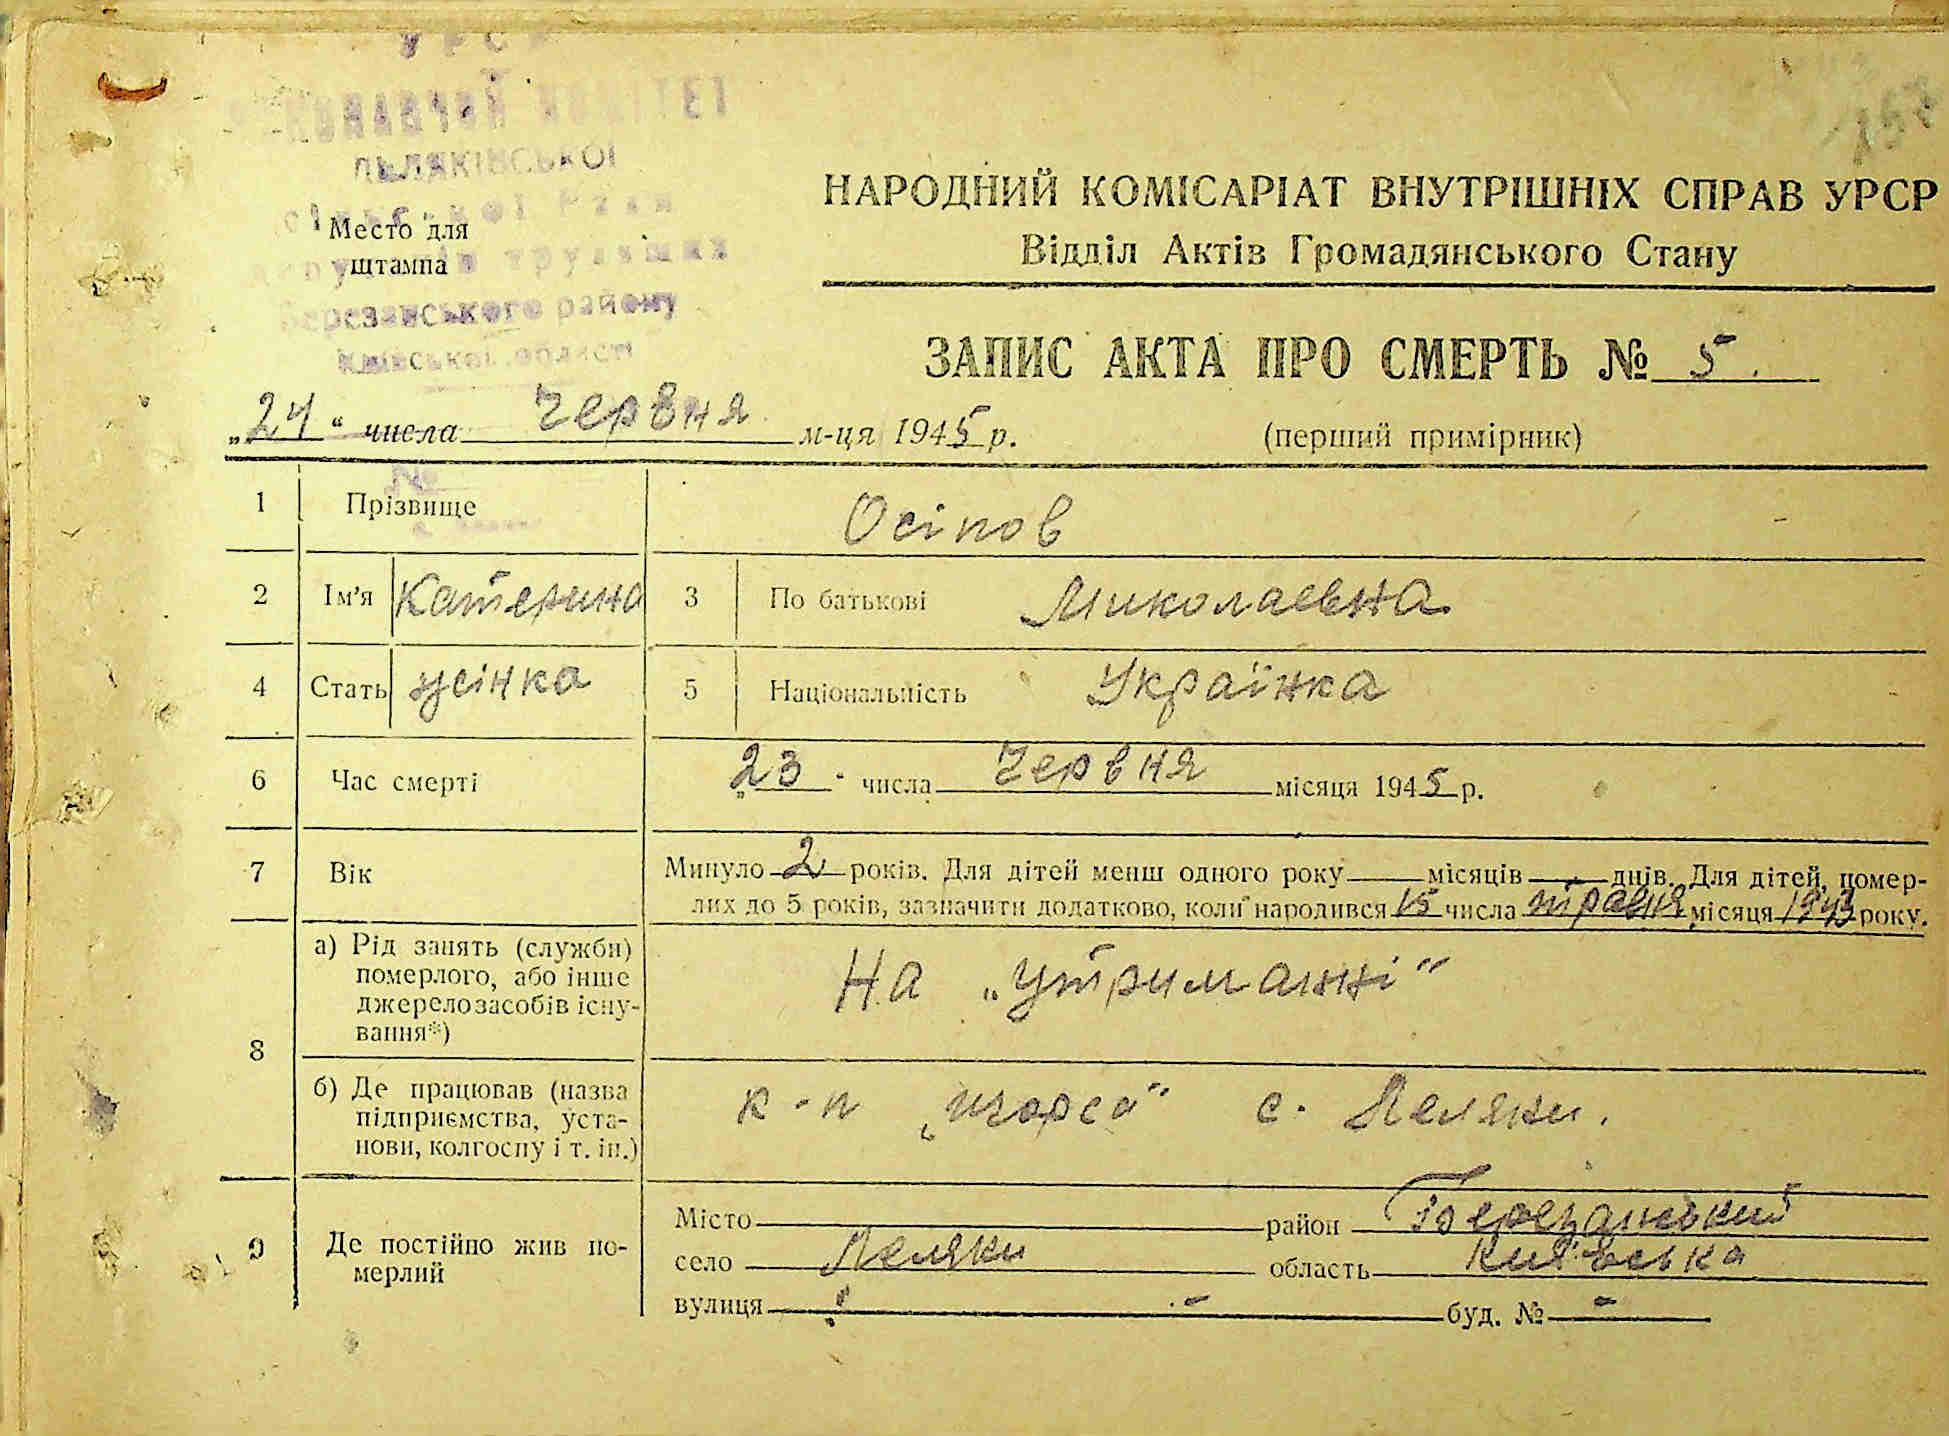 УРСР
КОНАВЧИЙ КОМІТЕТ
ЛЕЛЯКІВСЬКОЇ
сільської Ради
депутатів трудящих
Березанського району
Київської області
№
Место для
штампа
НАРОДНИЙ КОМІСАРІАТ ВНУТРІШНІХ СПРАВ УРСР
Відділ Актів Громадянського Стану
ЗАПИС АКТА ПРО СМЕРТЬ № 5.
„24“ числа червня м-ця 1945 р.
(перший примірник)
1 Прізвище Осіпов
2 Ім'я Катерина 3 По батькові Миколаевна
4 Стать жінка 5 Національність Українка
6 Час смерті „23 числа червня місяця 1945 р.
7 Вік Минуло 2 років. Для дітей менш одного року місяців днів. Для дітей, помер-
лих до 5 років, зазначити додатково, коли народився 15 числа травня місяця 1943 року.
8 а) Рід занять (служби)
померлого, або інше
джерело засобів існу-
вання*)
На „утриманні“
б) Де працював (назва
підприємства, уста-
нови, колгоспу і т. ін.)
к-п „щорса“ с. Леляки.
9 Де постійно жив по-
мерлий
Місто район Березанський
село Леляки область Київська
вулиця - буд. № -